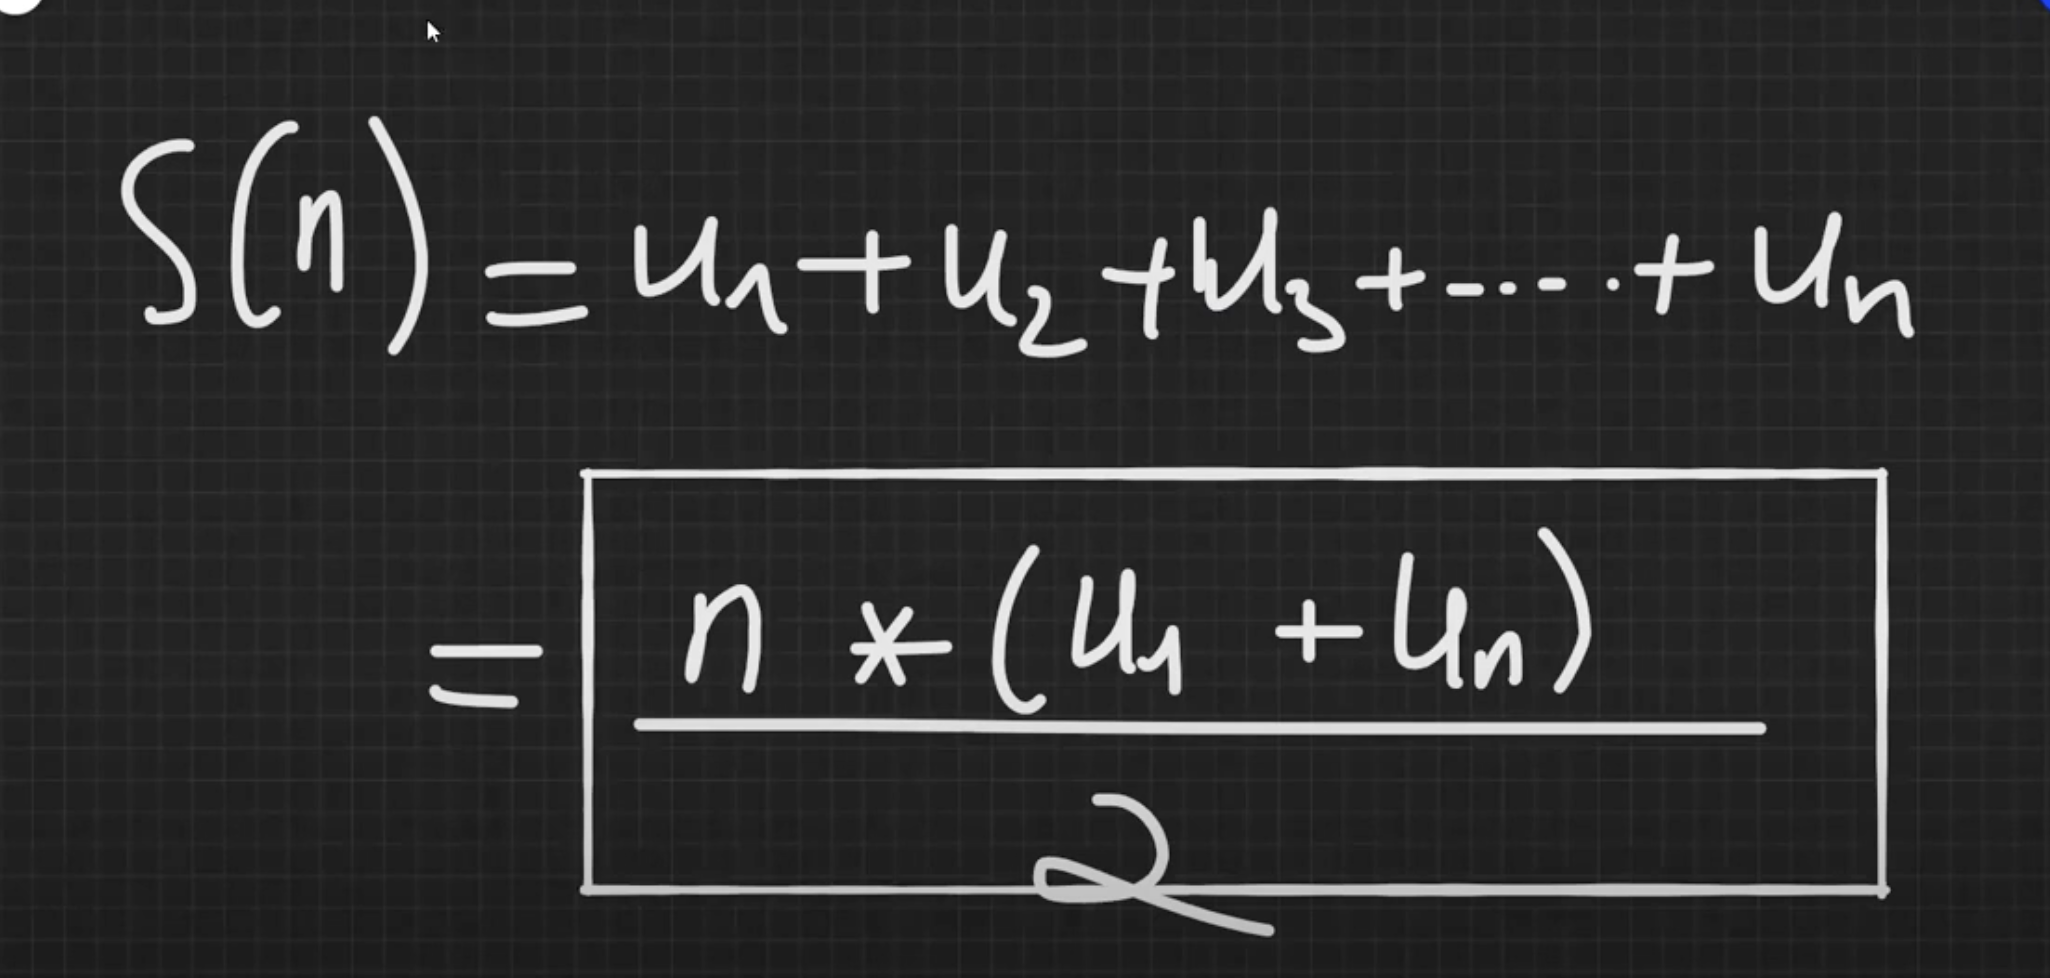 S(n) = u₁ + u₂ + u₃ + -.-. + uₙ
= n * (u₁ + uₙ)
2